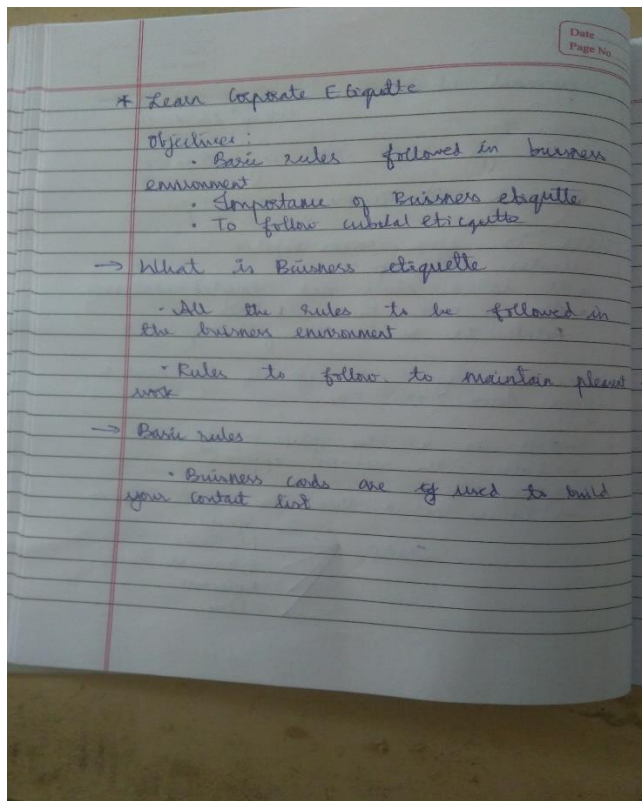 Date
Page No
* Learn Corporate Etiquette
Objectives:
· Basic rules followed in buisness
environment
· Importance of Buisness etiqutte
· To follow eticqutte
→ What is Buisness etiquette
· All the rules to be followed in
the buisness environment
· Rules to follow to maintain pleasent
work
→ Basic rules
· Buisness cards are used to build
your contact list